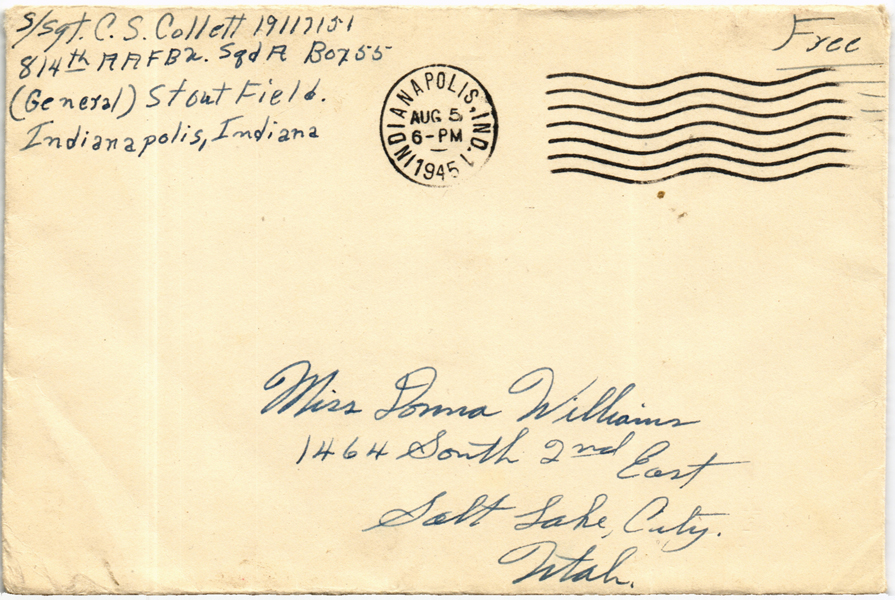 S/Sgt. C. S. Collett 19117151
814th AAFBU. Sqd A Box 55
(General) Stout Field.
Indianapolis, Indiana
Free
INDIANAPOLIS, IND. 1
AUG 5
6-PM
1945
Miss Donna Williams
1464 South 2nd East
Salt Lake, City.
Utah.